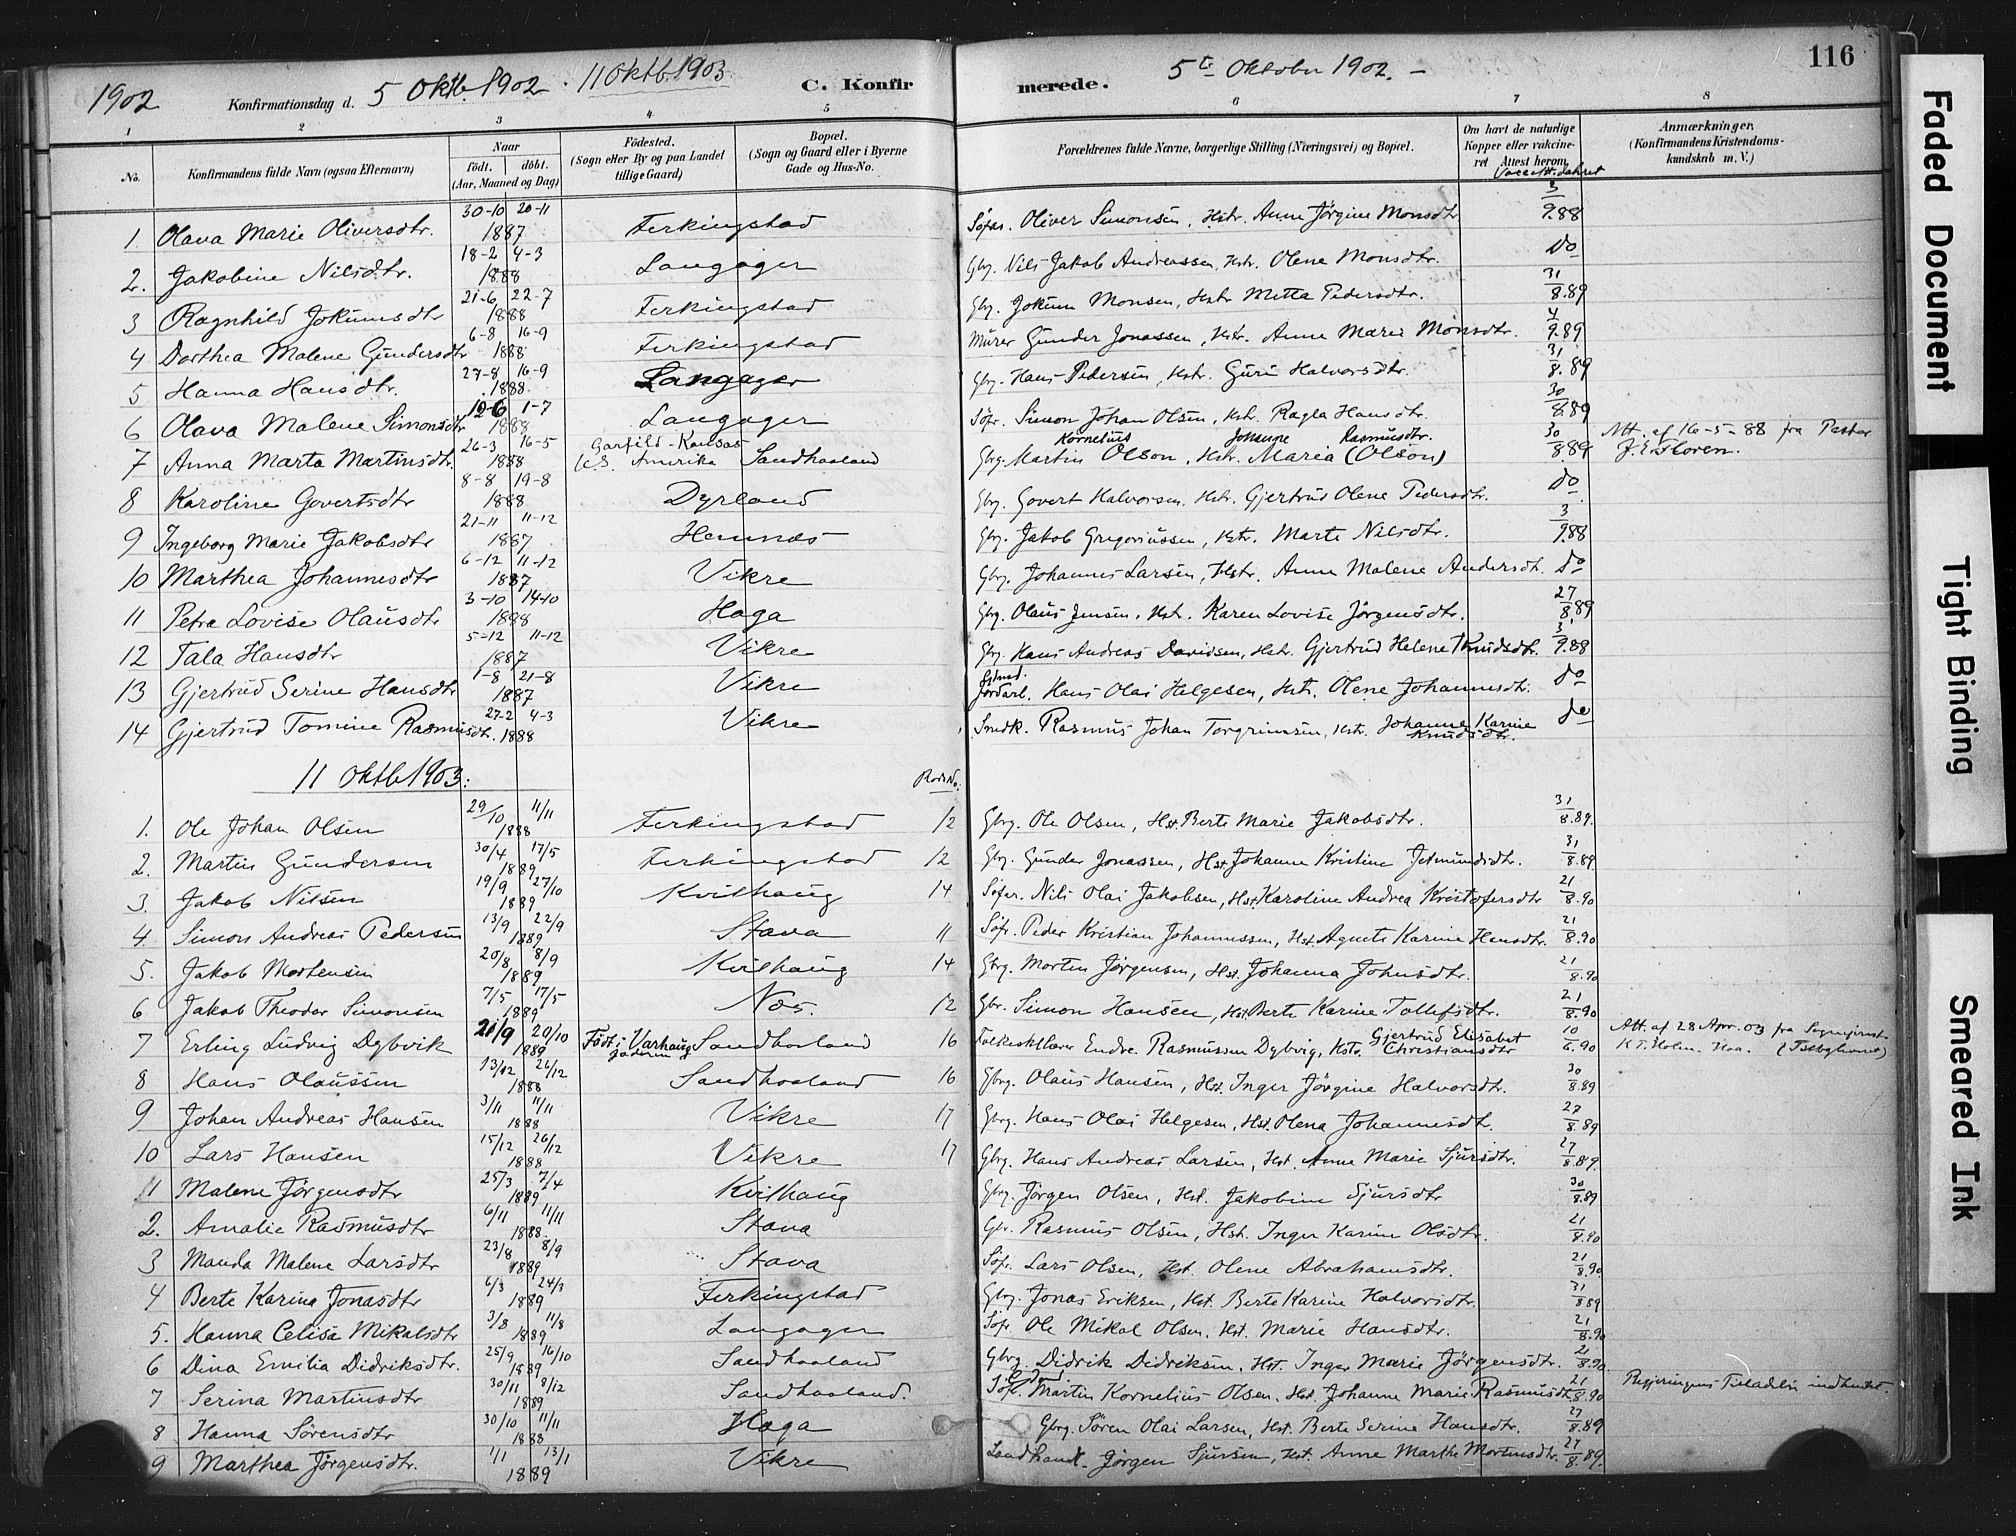 1902 Konfirmationsdag d. 5 Oktb. 1902 · 11 Oktb 1903 C. Konfir merede. 5te Oktober 1902. — 116
1 2 3 4 5 6 7 8
No. Konfirmandens fulde Navn (ogsaa Efternavn) Naar født. døbt. (Aar, Maaned og Dag) Fødested. (Sogn eller By og paa Landet tillige Gaard) Bopæl. (Sogn og Gaard eller i Byerne Gade og Hus-No. Forældrenes fulde Navne, borgerlige Stilling (Næringsvei) og Bopæl. Om havt de naturlige Kopper eller vakcineret Attest herom. Anmærkninger. (Konfirmandens Kristendomskundskab m. V.)
1 Olava Marie Oliversdtr. 30-10 20-11 1887 Ferkingstad Oliver Simonsen, Hstr. Anne Jörgine Monsdtr 3/9.88
2. Jakobine Nilsdtr. 18-2 4-3 1888 Langager Gbrg. Nils Jakob Andreassen, Hstr. Olene Monsdtr. Do
3 Ragnhild Jokumsdtr 21-6 22-7 1888 Ferkingstad Gbrg. Jokum Monsen, Hstr Metta Pedersdtr. 31/8.89
4 Dorthea Malene Gundersdtr 6-8 16-9 1888 Ferkingstad Murer Gunder Jonassen, Hstr. Anne Marie Monsdtr. 4/9.89
5 Hanna Hansdtr. 27-8 16-9 1888 Langager Gbrg. Hans Pedersen, Hstr. Guri Halvorsdtr. 31/8.89
6 Olava Malene Simonsdtr 1-7 1888 Langager Söfr. Simon Johan Olsen, Hstr. Ragla Hansdtr. 30/8.89
7 Anna Marta Martinsdtr. 26-3 16-5 1888 Garfild-Kansas Amerika Sandhaaland Gbrg. Martin Kornelius Olson, Hstr. Maria Johanne Rasmusdtr. (Olson) 30/8.89 Att. af 16-5-88 fra Pastor J. E. Floren.
8 Karoline Govertsdtr 8-8 19-8 1888 Dyrland Gbrg. Govert Halvorsen, Hstr. Gjertrud Olene Pedersdtr. do
9 Ingeborg Marie Jakobsdtr 21-11 11-12 1887 Hemnes Gbrg. Jakob Gregoriussen, Hstr. Marte Nilsdtr. 3/9.88
10 Marthea Johannesdtr 6-12 11-12 1887 Vikre Gbrg. Johannes Larsen, Hstr. Anne Malene Andersdtr. Do
11 Petra Lovise Olausdtr 3-10 14-10 1888 Haga Gbrg. Olaus Jensen, Hst. Karen Lovise Jörgensdtr. 27/8.89
12 Tala Hansdtr 5-12 11-12 1887 Vikre Gbrg. Hans Andreas Davidsen, Hstr. Gjertrud Helene Knudsdtr. 3/9.88
13 Gjertrud Serine Hansdtr 1-8 21-8 1887 Vikre Jordarb. Hans Olai Helgesen, Hstr. Olene Johannesdtr. do
14 Gjertrud Tomine Rasmusdtr. 27-2 4-3 1888 Vikre Smdk. Rasmus Johan Torgrimsen, Hstr. Johanne Karine Knudsdtr. do
11 Oktb 1903.
1. Ole Johan Olsen 29/10 11/11 1888 Ferkingstad 12 Gbrg. Ole Olsen, Hst. Berte Marie Jakobsdtr. 31/8.89.
2. Martin Gundersen 30/4 17/5 1889 Ferkingstad 12 Gbrg. Gunder Jonassen, Hst Johanne Kristine Jetmundsdtr. 31/8.89
3. Jakob Nilsen 19/9 27/10 1889 Kvilhaug 14 Söfr. Nils Olai Jakobsen, Hst. Karoline Andrea Kristofersdtr 21/8.90
4. Simon Andreas Pedersen 13/9 22/9 1889 Stava 11 Söfr. Peder Kristian Johannessen, Hst. Agnete Karine Hansdtr. 21/8.90
5. Jakob Mortensen 20/8 8/9 1889 Kvilhaug 14 Gbrg. Morten Jörgensen, Hst. Johanna Johnsdtr. 21/8.90
6 Jakob Theodor Simonsen 7/5 17/5 1889 Nes. 12 Gbr. Simon Hansen, Hst Berte Karine Tollefsdtr. 21/8.90
7 Erling Ludvig Dybvik 21/9 20/10 1889 Född i Varhaug Jæderen Sandhaaland 16 Folkesklærer Endre Rasmussen Dybvig, Hstr. Gjertrud Elisabet Christiansdtr 10/6.90 Att. af 28 Apr. 03 fra Sogneprest K. T. Holm. Haa.
8 Hans Olaussen 13/12 26/12 1888 Sandhaaland 16 Gbrg. Olaus Hansen, Hst. Inger Jörgine Halvorsdtr. 30/8.89
9 Johan Andreas Hansen 3/11 11/11 1888 Vikre 17 Gbrg. Hans Olai Helgesen, Hst. Olena Johannesdt. 27/8.89
10 Lars Hansen 15/12 26/12 1888 Vikre 17 Gbrg. Hans Andreas Larsen, Hst. Anne Marie Sjursdtr. 27/8.89.
11 Malene Jörgensdtr 25/3 7/4 1889 Kvilhaug Gbrg. Jörgen Olsen, Hst. Jakobine Sjursdtr 30/8.89
2. Amalie Rasmusdtr 6/11 11/11 1888. Stava Gbr. Rasmus Olsen, Hst. Inger Karine Olsdtr. 21/8.90
3 Manda Malene Larsdtr 23/8 8/9 1889 Stava Söfr. Lars Olsen, Hst. Olene Abrahamsdtr. 21/8.90
4 Berte Karina Jonasdtr 6/3 24/3 1889 Ferkingstad Gbrg. Jonas Eriksen, Hst. Berte Karine Halvorsdtr. 31/8.89
5. Hanna Celisa Mikalsdtr 3/8 11/8 1889 Langager Söfr. Ole Mikal Olsen. Hst. Marie Hansdtr. 21/8.90
6 Dina Emilia Didriksdtr. 25/9 16/10 1889 Sandhaaland Gbrg. Didrik Didriksen, Hst. Inger Marie Jörgensdtr. 21/8.90.
7 Serina Martinsdtr 30/11 8/12 1889 Sandhaaland. Söf. Martin Kornelius Olsen, Hst. Johanne Marie Rasmusdt. 21/8.90 Regjeringens Tilladelse indhentet.
8 Hanna Sörensdtr 30/10 11/11 1888 Haga Gbrg. Sören Olai Larsen, Hst. Berte Serine Hansdtr. 27/8.89
9 Marthea Jörgensdtr. 1/1 13/1 1889 Vikre Landhand. Jörgen Sjursen, Hst. Anne Marthe Mortensdtr. 27/8.89.
Faded Document
Tight Binding
Smeared Ink